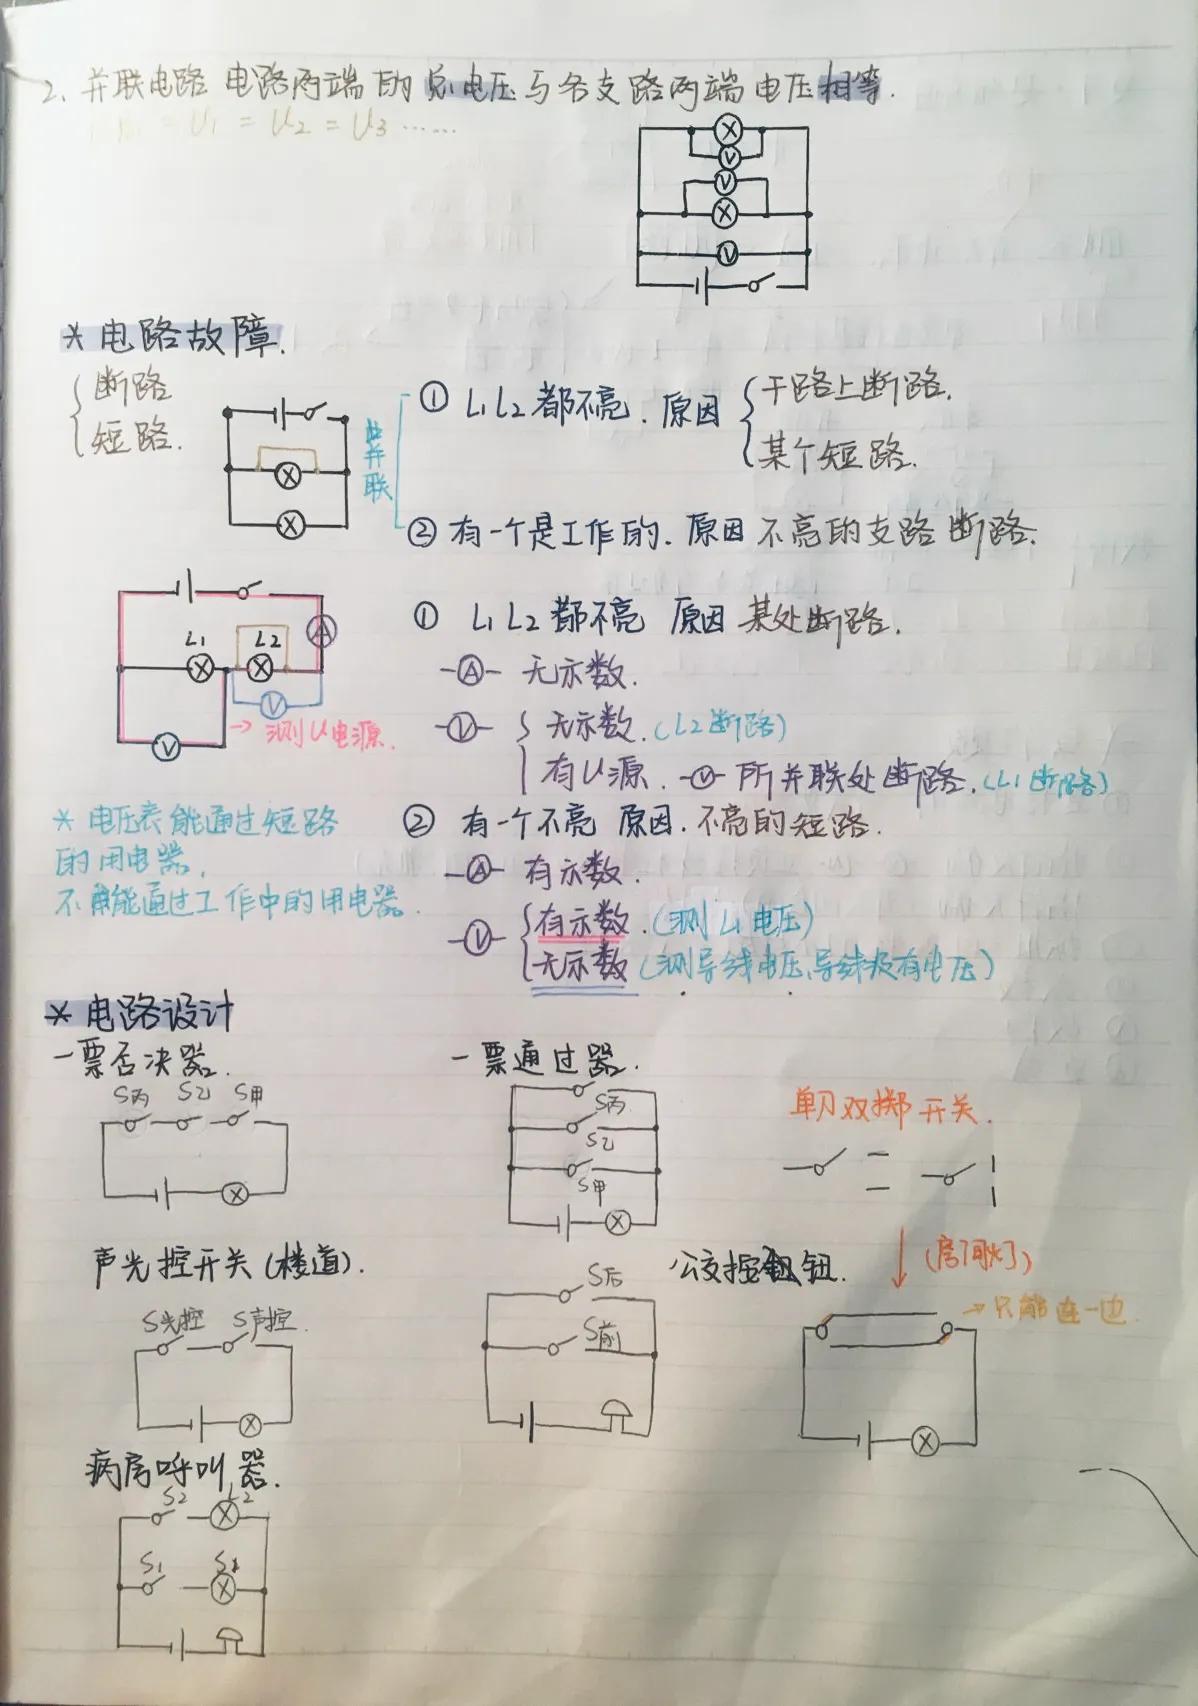 2. 并联电路 电路两端的总电压与各支路两端电压相等.
= U1 = U2 = U3 ……
* 电路故障.
断路
短路.
并联
① L1 L2 都不亮. 原因
干路上断路.
某个短路.
② 有一个是工作的. 原因 不亮的支路断路.
L1 L2
A
V
V
→ 测U电源.
① L1 L2 都不亮 原因 某处断路.
-A- 无示数.
-V- 无示数. (L2断路)
有U源. -V- 所并联处断路. (L1断路)
* 电压表能通过短路
的用电器,
不能通过工作中的用电器.
② 有一个不亮 原因. 不亮的短路.
-A- 有示数.
-V- 有示数. (测L1电压)
无示数 (测导线电压、导线没有电压)
* 电路设计
一票否决器.
S丙 S乙 S甲
一票通过器.
S丙
S乙
S甲
单刀双掷开关.
声光控开关(楼道).
S光控 S声控.
公交按钮.
S后
S前
(房间灯)
→只能连一边.
病房呼叫器.
S2 L2
S1